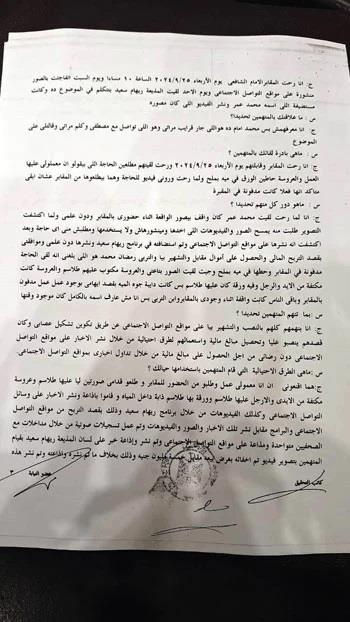 ج: انا رحت المقابر الامام الشافعى يوم الأربعاء ٢٠٢٤/٩/٢٥ الساعة ١٠ مساءا ويوم السبت اتفاجئت بالصور
منشورة على مواقع التواصل الاجتماعى ويوم الاحد لقيت المذيعة ريهام سعيد بتتكلم في الموضوع ده وكانت
مستضيفة اللى اسمه محمد عمر ونشر الفيديو اللى كان مصوره
س: ما علاقتك بالمتهمين تحديدا؟
ج: انا معرفهمش بس محمد امام ده هواللى جار قرايب مراتى وهو اللى تواصل مع مصطفى وكلم مراتى وقالتلى على
الموضوع
س: ماهى بادرة لقائك بالمتهمين؟
ج: انا رحت المقابر وقابلتهم يوم الأربعاء ٢٠٢٤/٩/٢٥ ورحت لقيتهم مطلعين الحاجة اللى بيقولو ان معمولى عليها
العمل والعروسة حاطين الورق في ميه بملح ولما رحت ورونى فيديو للحاجة وهما بيطلعوها من المقابر عشان ابقى
متأكد انها فعلا كانت مدفونة في المقبرة
س: ماهو دور كل منهم تحديدا؟
ج: انا لما رحت لقيت محمد عمر كان واقف بيصور الواقعة اثناء حضورى بالمقابر ودون علمى ولما اكتشفت
التصوير طلبت منه يمسح الصور والفيديوهات اللى اخدها وميشورهاش ولا يستخدمها ومطلبش منى اى حاجة وبعد
اكتشفت انه نشرها على مواقع التواصل الاجتماعى وتم استضافته في برنامج ريهام سعيد ونشرها دون علمى وموافقتى
بقصد التربح المالى والحصول على أموال مقابل والتشهير بيا والتربى رمضان محمد هو اللى بلغنى انه لقى الحاجة
مدفونة في المقابر وحطها في ميه بملح وجيت لقيت الصور بتاعتى والعروسة مكتوب عليهم طلاسم والعروسة كانت
مكتفة من الايد والرجل وفيه ورقة كان عليها طلاسم بس كانت دايبة جوه الميه بقصد ايهامى بوجود عمل عمل مدفون
بالمقابر وباقى الناس كانت واقفة اثناء وجودى بالمقابر وابن التربى بس انا مش عارف اسمه بالكامل كان موجود وقتها
س: بما تتهم المتهمين تحديدا؟
ج: انا بتهمهم كلهم بالنصب والتشهير بيا على مواقع التواصل الاجتماعى عن طريق تكوين تشكيل عصابى وكان
قصدهم ينصبو عليا وتحصيل مبالغ مالية واستعمالهم لطرق احتيالية من خلال نشر الاخبار على مواقع التواصل
الاجتماعى دون رضائى من اجل الحصول على مبالغ مالية من خلال تداول اخبارى بمواقع التواصل الاجتماعى.
س: ماهى الطرق الاحتيالية التي قام المتهمين باستخدامها حيالك؟
ج: هما اقنعونى ان انا معمولى عمل وطلبو من الحضور للمقابر و طلعو قدامى صورتين ليا عليها طلاسم وعروسة
مكتفة من الايدى والارجل عليها طلاسم وورقة بها طلاسم دابة داخل المياه و قاموا باذاعة ونشر الاخبار على وسائل
التواصل الاجتماعى وكذلك الفيديوهات من خلال برنامج ريهام سعيد وذلك بقصد التربح من مواقع التواصل
الاجتماعى والبرامج مقابل نشر تلك الاخبار والصور والفيديوهات وتم عمل تسجيلات صوتية من خلال مداخلات مع
الصحفيين متواجدة ومذاعة على مواقع التواصل الاجتماعى وتم نشر وإذاعة خبر على لسان المذيعة ريهام سعيد بقيام
المتهمين بتصوير فيديو تم اخفائه بغرض بيعه مقابل مليون جنيه وذلك بخلاف ما تم نشره واذاعته وتم نشر هذه
كاتب التحقيق
عضو النيابة
٣